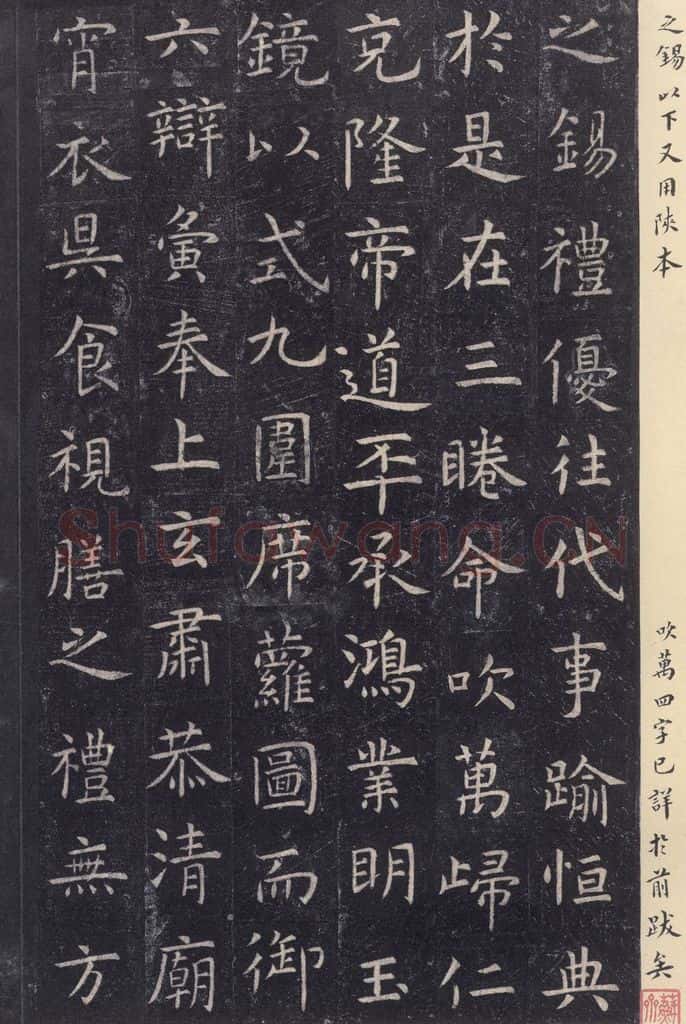 之錫以下又用陝本
吹萬四字已詳於前跋矣
之錫禮優往代事踰恒典
於是在三睠命吹萬歸仁
克隆帝道丕承鴻業明玉
鏡以式九圍席蘿圖而御
六辯寅奉上玄肅恭清廟
宵衣昃食視膳之禮無方
Shufawang.CN